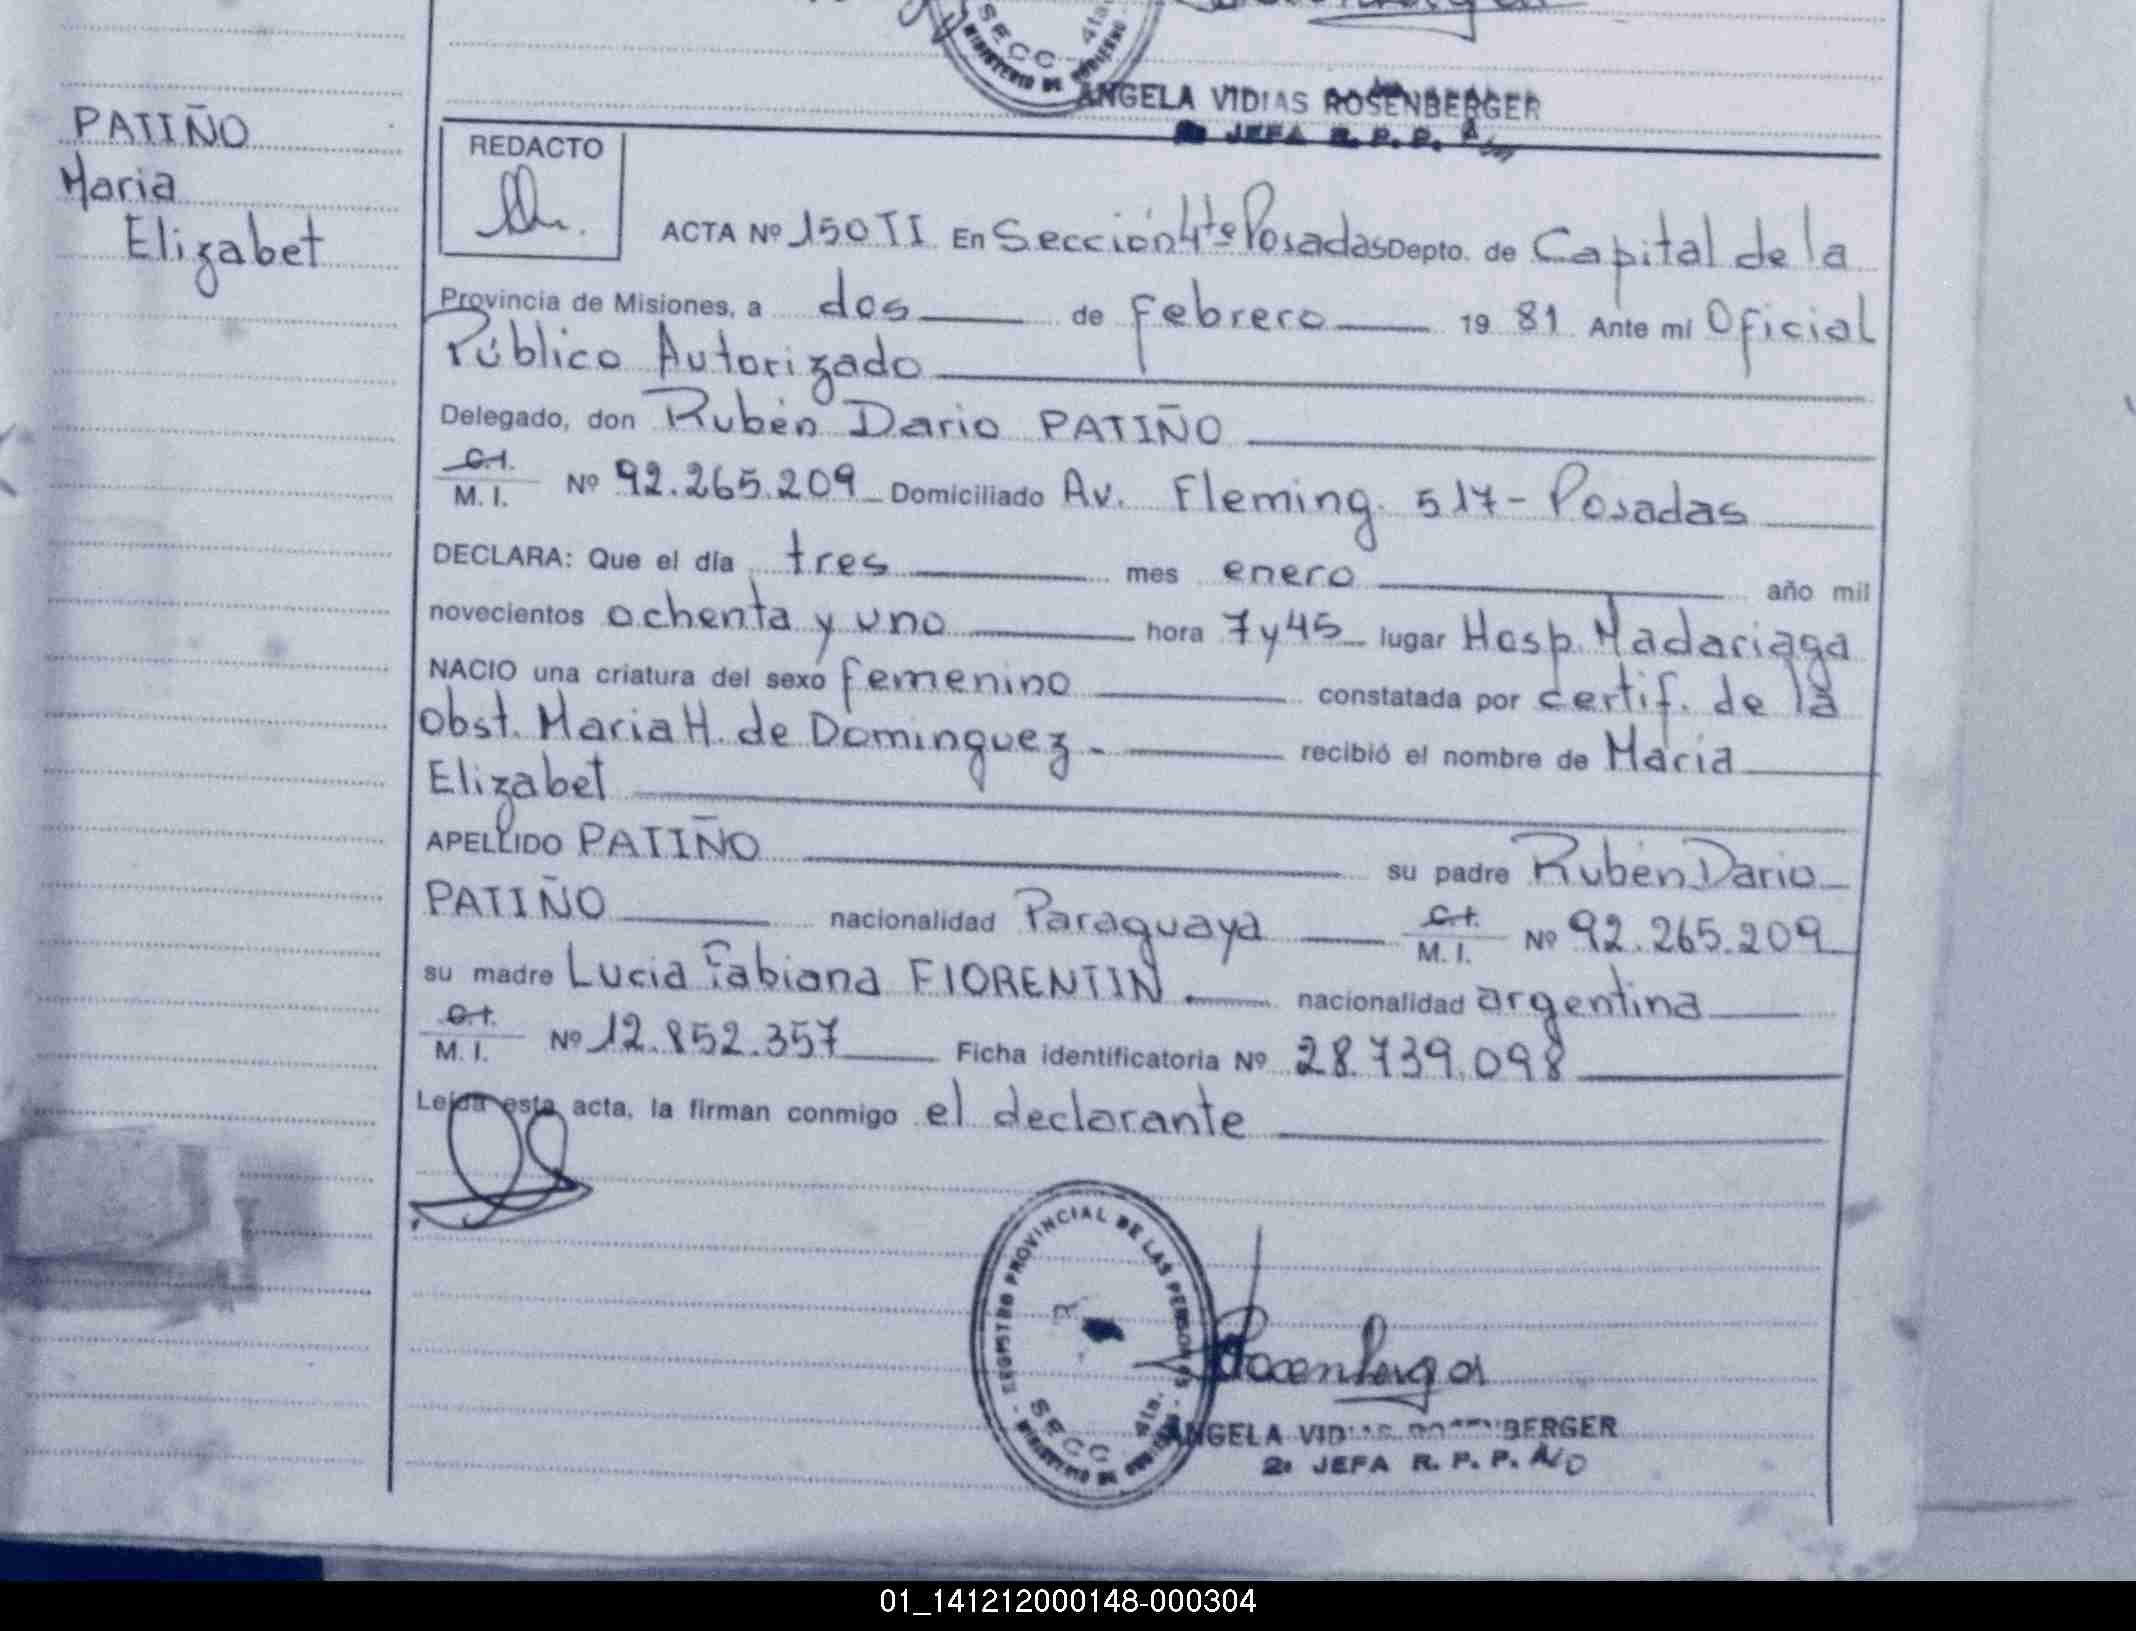 SECC 4ta.
MINISTERIO DE GOBIERNO
ANGELA VIDIAS ROSENBERGER
JEFA R. P. P.
PATIÑO
Maria
Elizabet
REDACTO
ACTA Nº 150 TI En Sección 4ta Posadas Depto. de Capital de la
Provincia de Misiones, a dos de febrero 19 81 Ante mí Oficial
Público Autorizado
Delegado, don Rubén Dario PATIÑO
C.I.
M. I. Nº 92.265.209 Domiciliado Av. Fleming 517 - Posadas
DECLARA: Que el día tres mes enero año mil
novecientos ochenta y uno hora 7 y 45 lugar Hosp. Madariaga
NACIO una criatura del sexo femenino constatada por certif. de la
Obst. Maria H. de Dominguez - recibió el nombre de Maria
Elizabet
APELLIDO PATIÑO su padre Rubén Dario
PATIÑO nacionalidad Paraguaya C.I.
M. I. Nº 92.265.209
su madre Lucia Fabiana FIORENTIN nacionalidad argentina
C.I.
M. I. Nº 12.852.357 Ficha identificatoria Nº 28.739.098
Leída esta acta, la firman conmigo el declarante
REGISTRO PROVINCIAL DE LAS PERSONAS
SECC. 4ta.
MINISTERIO DE GOBIERNO
ANGELA VIDIAS ROSENBERGER
2º JEFA R. P. P.
01_141212000148-000304